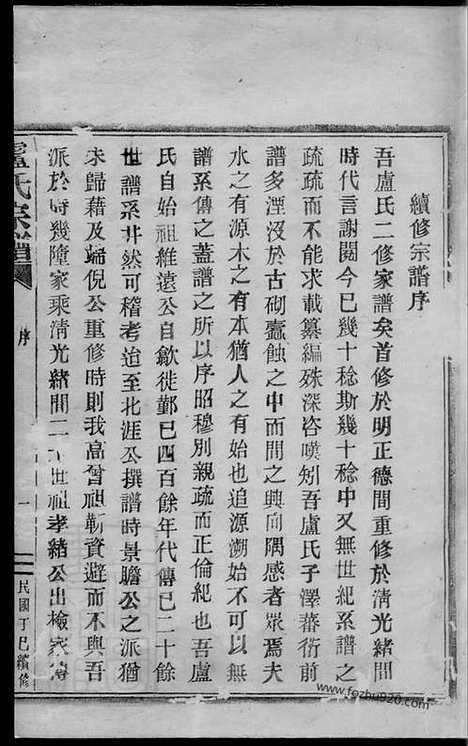 續修宗譜序
吾盧氏二修家譜矣首修於明正德間重修於清光緒間
時代言謝閱今已幾十稔斯幾十稔中又無世紀系譜之
疏疏而不能求載纂編殊深咨嘆矧吾盧氏子澤蕃衍前
譜多湮沒於古砌蠹蝕之中而間之興向隅感者眾焉夫
水之有源木之有本猶人之有始也追源溯始不可以無
譜系傳之蓋譜之所以序昭穆別親疏而正倫紀也吾盧
氏自始祖維遠公自歙徙鄞已四百餘年代傳已二十餘
世譜系井然可稽考迨至北涯公撰譜時景瞻公之派猶
未歸藉及端倪公重修時則我高曾祖靳資避而不與吾
派於時幾墮家乘清光緒間二十世祖孝緒公出檢家傳
盧氏宗譜
序
一
民國丁巳續修
www.fozhu920.com